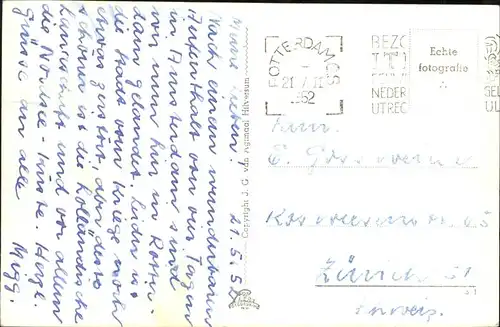 21.5.52
Meine Lieben!
Nach einem wunderbaren
Aufenthalt von vier Tagen
in Amsterdam sind
wir nun hier in Rotter-
dam gelandet. Leider ist
die Stadt vom Kriege noch
etwas zerstört, aber desto
schöner ist die holländische
Landschaft und vor allem
die Nordsee-Küste. Herzl.
Grüsse an alle
Copyright J. G. van Agtmaal Hilversum
ROTTERDAM CS
21
1952
BEZO
NEDER
UTREC
Echte
fotografie
GEL
UL
Fam.
E.
Zürich 51
Schweiz.